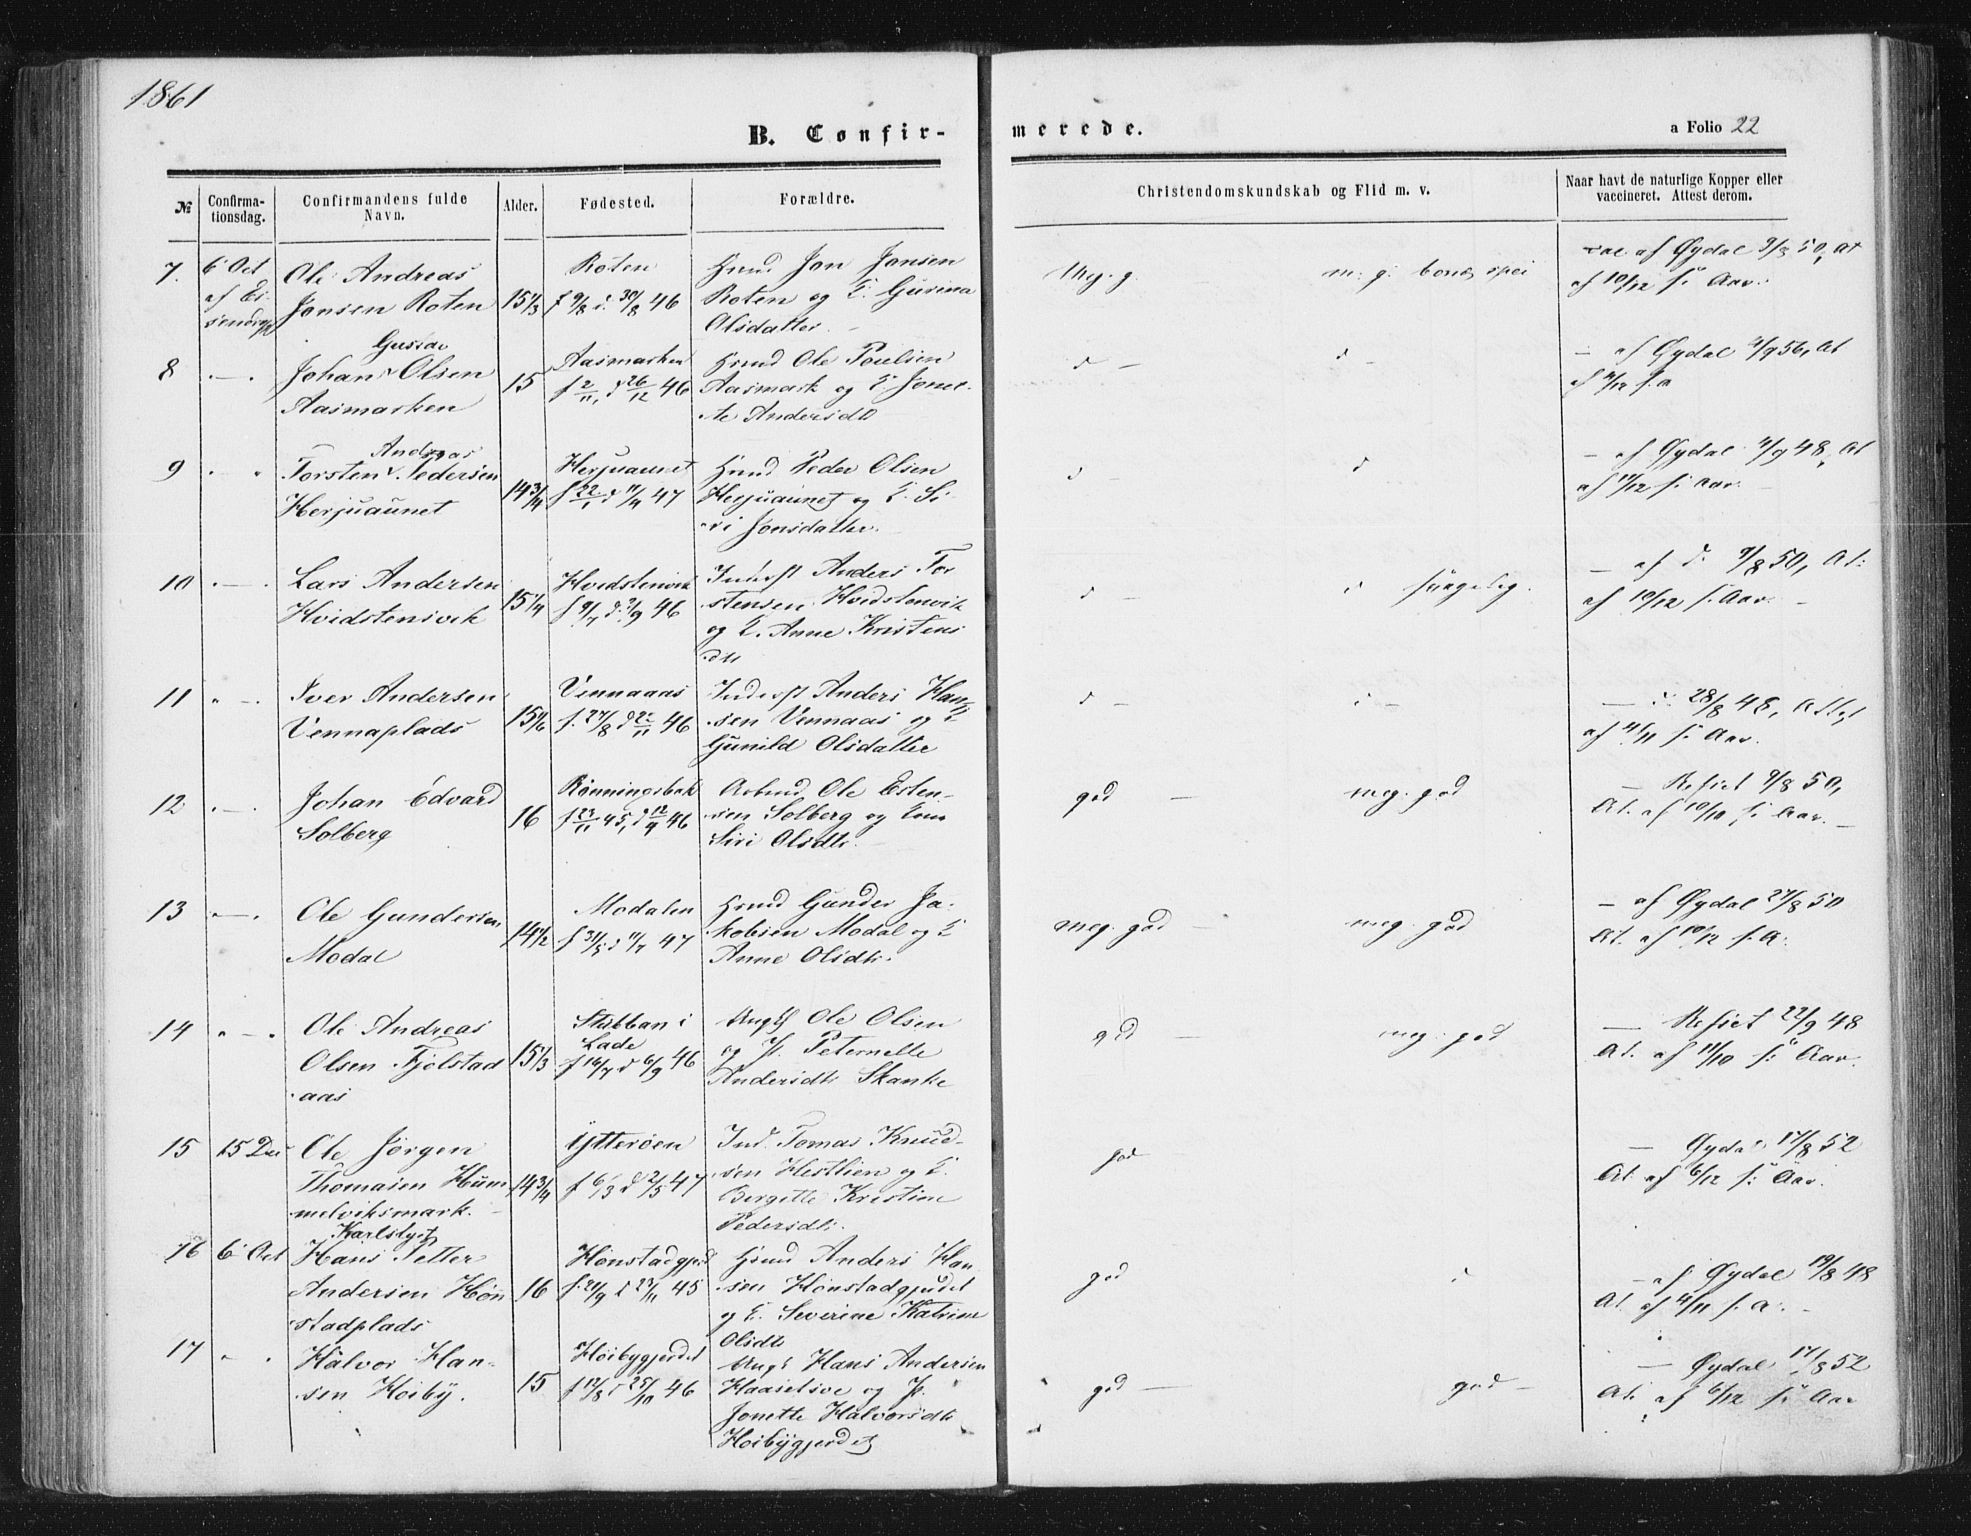 1861
B. Confir- merede.
a Folio 22
№
Confirma-
tionsdag.
Confirmandens fulde
Navn.
Alder.
Fødested.
Forældre.
Christendomskundskab og Flid m. v.
Naar havt de naturlige Kopper eller
vaccineret. Attest derom.
7. 6 Oct
af
Ole Andreas
Jonsen Roten
15 1/3
Roten
f 9/8 d. 30/8 46
Grmd Jon Jonsen
Roten og E. Gurina
Olsdatter
Meg. g. m. g. bonæ spei
vac af Øydal 9/8 50, At
af 10/12 s. Aar.
8 " — "
Gustav
Johan Olsen
Aasmarken
15
Aasmarken
f 2/11 d 26/12 46
Grmd Ole Poulsen
Aasmark og E. Jonet-
te Andersdtr
d — d -
— af Øydal 4/9 56, At
af 11/12 s. a
9 " — "
Andreas
Torsten Pedersen
Herjuaunet
14 3/4
Herjuaunet
f 22/1 d 11/4 47
Grmd Peder Olsen
Herjuaunet og E. Si-
ri Jonsdatter.
d - d
— af Øydal 4/9 48, At
af 11/12 s. Aar. —
10 " — "
Lars Andersen
Hvidstensvik
15 1/4
Hvidstenvik
f 9/7 d. 7/9 46
Inderst Anders Tor
stensen Hvidstenvik
og E. Anne Kristens
dtr
d — d sürgelig.
— af d. 9/8 50, At:
af 10/12 s. Aar. —
11 " — "
Iver Andersen
Vennaplads
15 1/6
Vennaaas
f. 27/8 d 22/11 46
Inderst Anders Han-
sen Vennaas og E
Gunild Olsdatter
d — d —
— d. 28/8 48, Attest
af 4/11 s. Aar.
12 " — "
Johan Edvard
Solberg
16
Rönningsbak
f 23/11 45, d 12/4 46
Arbmd Ole Esten-
sen Solberg og Kone
Siri Olsdtr.
god — meg. god
— Refset 9/8 50,
At. af 10/10 s. Aar. —
13 " — "
Ole Gundersen
Modal
14 1/2
Modalen
f 31/5 d 11/7 47
Grmd Gunder Ja-
kobsen Modal og E
Anne Olsdtr.
meg. god — meg. god
— af Øydal 27/8 50
At. af 10/12 s. a.
14 " — "
Ole Andreas
Olsen Fjölstad
aas
15 1/3
Stubban i
Lade
f 16/7 d 6/9 46
Ungk Ole Olsen
og P. Peternelle
Andersdtr Skanke
god — meg. god
— Refset 22/9 48
At. af 11/10 s. Aar.
15 15 Dec
Ole Jørgen
Thomasen Hum
melviksmark.
14 3/4
Ytterøen
f 6/3 d 2/5 47
Ind. Tomas Knud-
sen Hestlien og E.
Bergitte Kristine
Pedersdtr.
god
— Øydal 17/8 52
At. af 6/12 s. Aar.
16 6 Oct
Karlslyst
Hans Petter
Andersen Høn
stadplads
16
Hönstadgjerd
f. 21/9 d 23/11 45
Grmd Anders Han
sen Hönstadgjerdet
og E. Severine Katrine
Olsdtr
god d
— af Øydal 19/8 48
At. af 4/11 s. a. -
17 " "
Halvor Han-
sen Høiby.
15
Høibygjerdet
f 12/8 d 25/10 46
Ungk Hans Andersen
Haasetsve og P.
Jonette Halvorsdtr
Høibygjerdet
god — god —
— Øydal 17/8 52
At. af 6/12 s. Aar